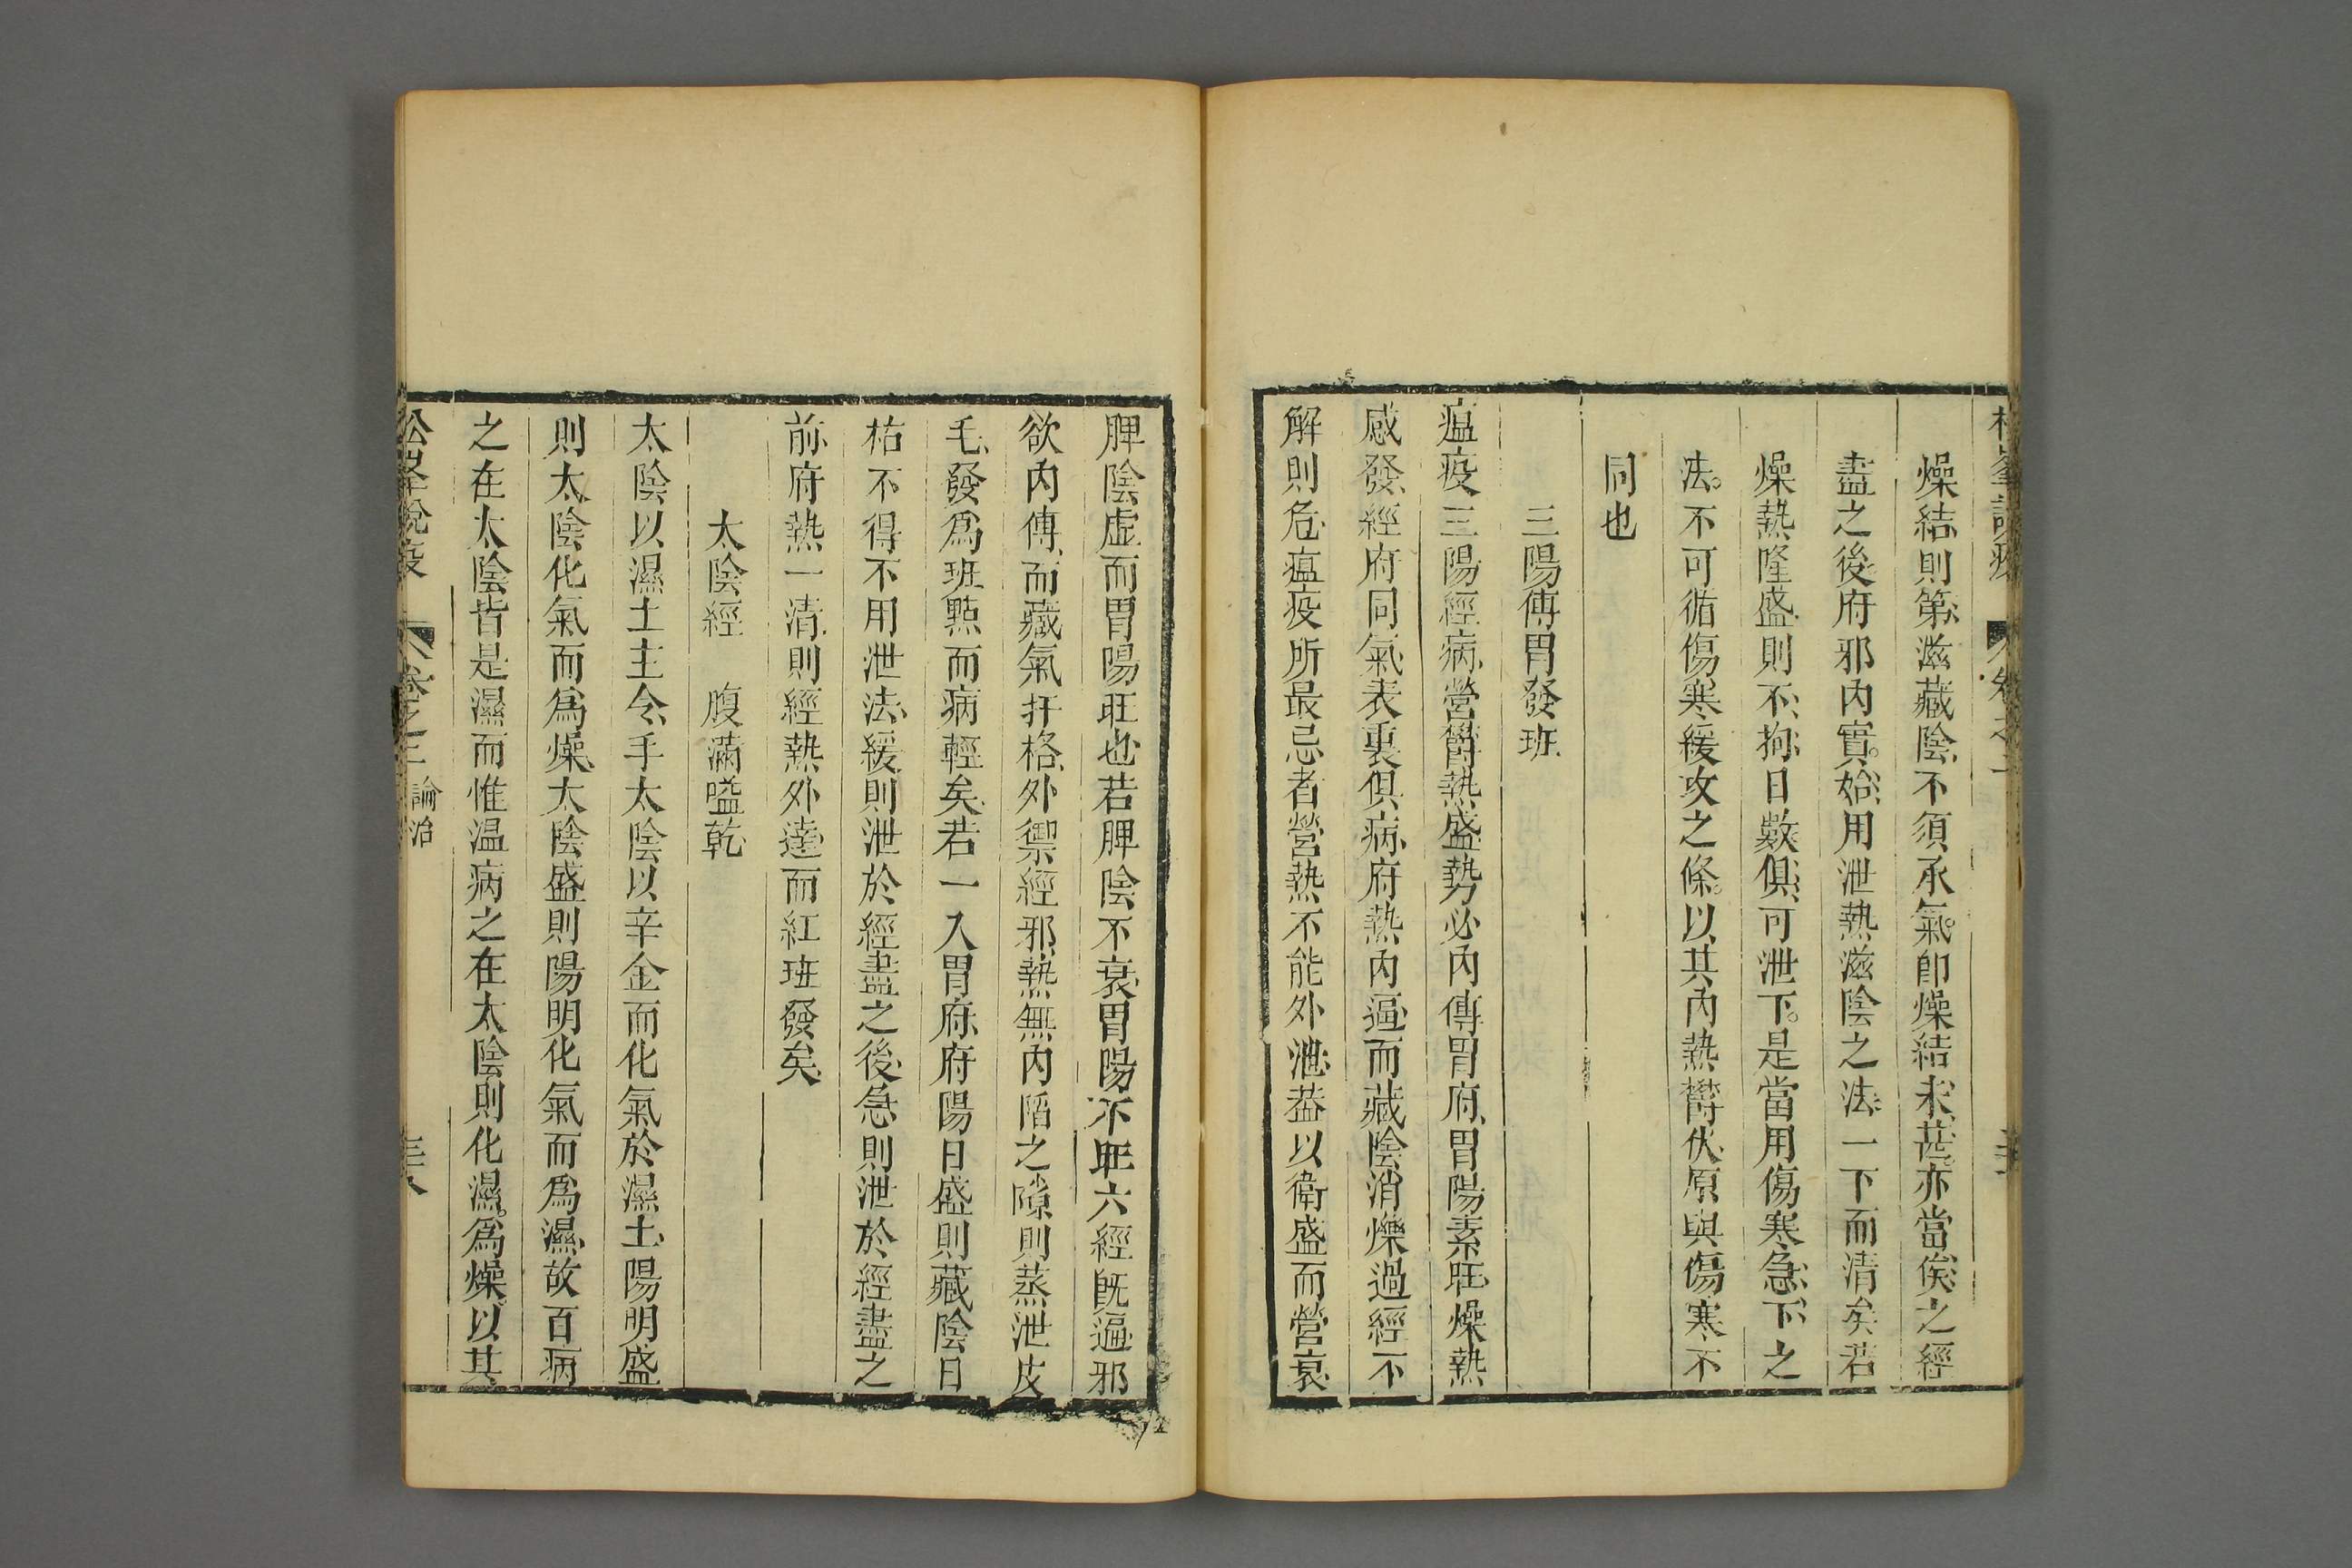 燥結則第滋藏陰不須承氣即燥結未甚亦當俟之經
盡之後府邪內實始用泄熱滋陰之法一下而清矣若
燥熱隆盛則不拘日數俱可泄下是當用傷寒急下之
法不可循傷寒緩攻之條以其內熱欝伏原與傷寒不
同也
三陽傳胃發斑
瘟疫三陽經病營欝熱盛勢必內傳胃府胃陽素旺燥熱
感發經府同氣表裏俱病府熱內逼而藏陰消爍過經不
解則危瘟疫所最忌者營熱不能外泄葢以衛盛而營衰
脾陰虛而胃陽旺也若脾陰不衰胃陽不旺六經既逼邪
欲內傳而藏氣扞格外禦經邪熱無內陷之隙則蒸泄皮
毛發爲斑㸃而病輕矣若一入胃府府陽日盛則藏陰日
枯不得不用泄法緩則泄於經盡之後急則泄於經盡之
前府熱一清則經熱外達而紅斑發矣
太陰經　腹滿嗌乾
太陰以濕土主令手太陰以辛金而化氣於濕土陽明盛
則太陰化氣而爲燥太陰盛則陽明化氣而爲濕故百病
之在太陰皆是濕而惟温病之在太陰則化濕爲燥以其
松峯說疫　卷之三　論治